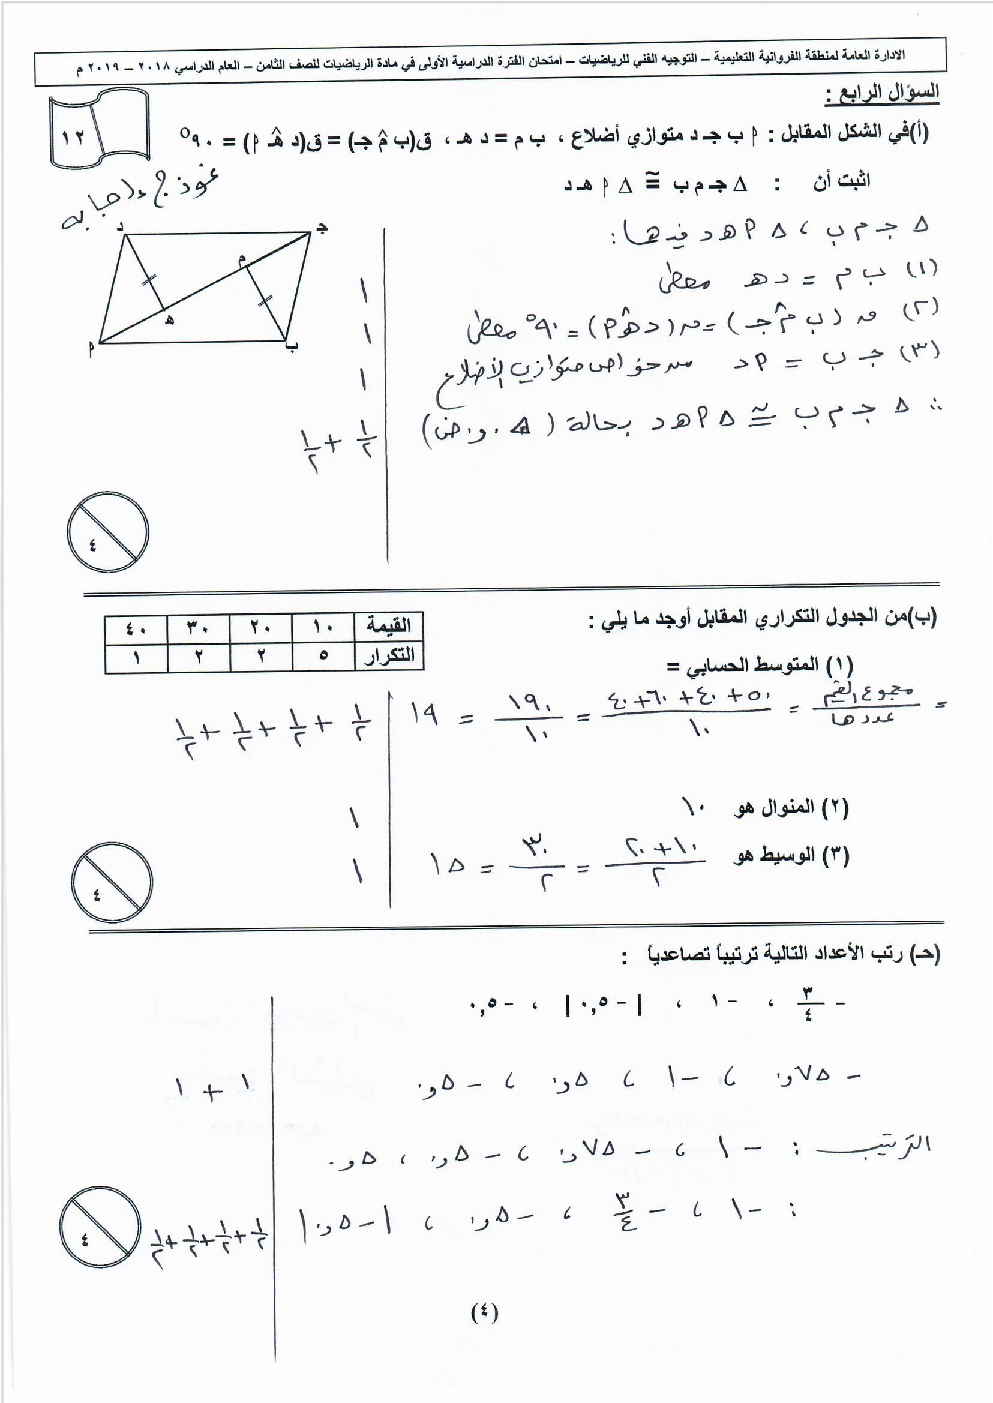 الادارة العامة لمنطقة الفروانية التعليمية – التوجيه الفني للرياضيات – امتحان الفترة الدراسية الأولى في مادة الرياضيات للصف الثامن – العام الدراسي ٢٠١٨ – ٢٠١٩ م
السؤال الرابع :
١٢
(أ)في الشكل المقابل : ٩ ب جـ د متوازي أضلاع ، ب م = د هـ ، ق(ب م̂ جـ) = ق(د هـ̂ ٩) = ٩٠°
اثبت أن : Δ جـ م ب ≅ Δ ٩ هـ د
نموذج إجابه
Δ جـ م ب ، Δ ٩ هـ د فيها :
(١) ب م = د هـ معطى ١
(٢) ق (ب م̂ جـ) = ق (د هـ̂ ٩) = ٩٠° معطى ١
(٣) جـ ب = ٩ د من خواص متوازي الأضلاع ١
∴ Δ جـ م ب ≅ Δ ٩ هـ د بحالة ( . و . ض) ١/٢ + ١/٢
د جـ
م
هـ
٩ ب
٤
(ب)من الجدول التكراري المقابل أوجد ما يلي :
القيمة ١٠ ٢٠ ٣٠ ٤٠
التكرار ٥ ٢ ٢ ١
(١) المتوسط الحسابي =
= مجموع القيم / عددها = ٥٠ + ٤٠ + ٦٠ + ٤٠ / ١٠ = ١٩٠ / ١٠ = ١٩ ١/٢ + ١/٢ + ١/٢ + ١/٢
(٢) المنوال هو ١٠ ١
(٣) الوسيط هو ١٠ + ٢٠ / ٢ = ٣٠ / ٢ = ١٥ ١
٤
(حـ) رتب الأعداد التالية ترتيباً تصاعدياً :
- ٣/٤ ، -١ ، |-٠,٥| ، -٠,٥
-٠,٧٥ ، -١ ، ٠,٥ ، -٠,٥ ١ + ١
الترتيب : -١ ، -٠,٧٥ ، -٠,٥ ، ٠,٥
: -١ ، -٣/٤ ، -٠,٥ ، |-٠,٥| ١/٢ + ١/٢ + ١/٢ + ١/٢
٤
(٤)